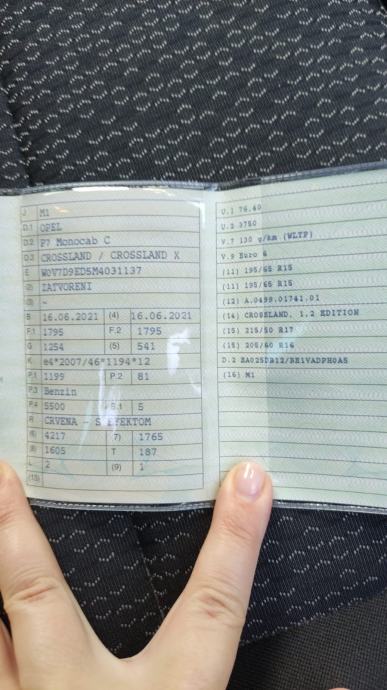 J M1
D.1 OPEL
D.2 P7 Monocab C
D.3 CROSSLAND / CROSSLAND X
E W0V7D9ED5M4031137
(2) ZATVORENI
(3) -
B 16.06.2021 (4) 16.06.2021
F.1 1795 F.2 1795
G 1254 (5) 541
K e4*2007/46*1194*12
P.1 1199 P.2 81
P.3 Benzin
P.4 5500 S.1 5
R CRVENA - S EFEKTOM
(6) 4217 7) 1765
(8) 1605 T 187
L 2 (9) 1
(13)
U.1 76.60
U.2 3750
V.7 130 g/km (WLTP)
V.9 Euro 6
(11) 195/65 R15
(11) 195/65 R15
(12) A.0499.01741.01
(14) CROSSLAND, 1.2 EDITION
(15) 215/50 R17
(15) 205/60 R16
D.2
(16) M1